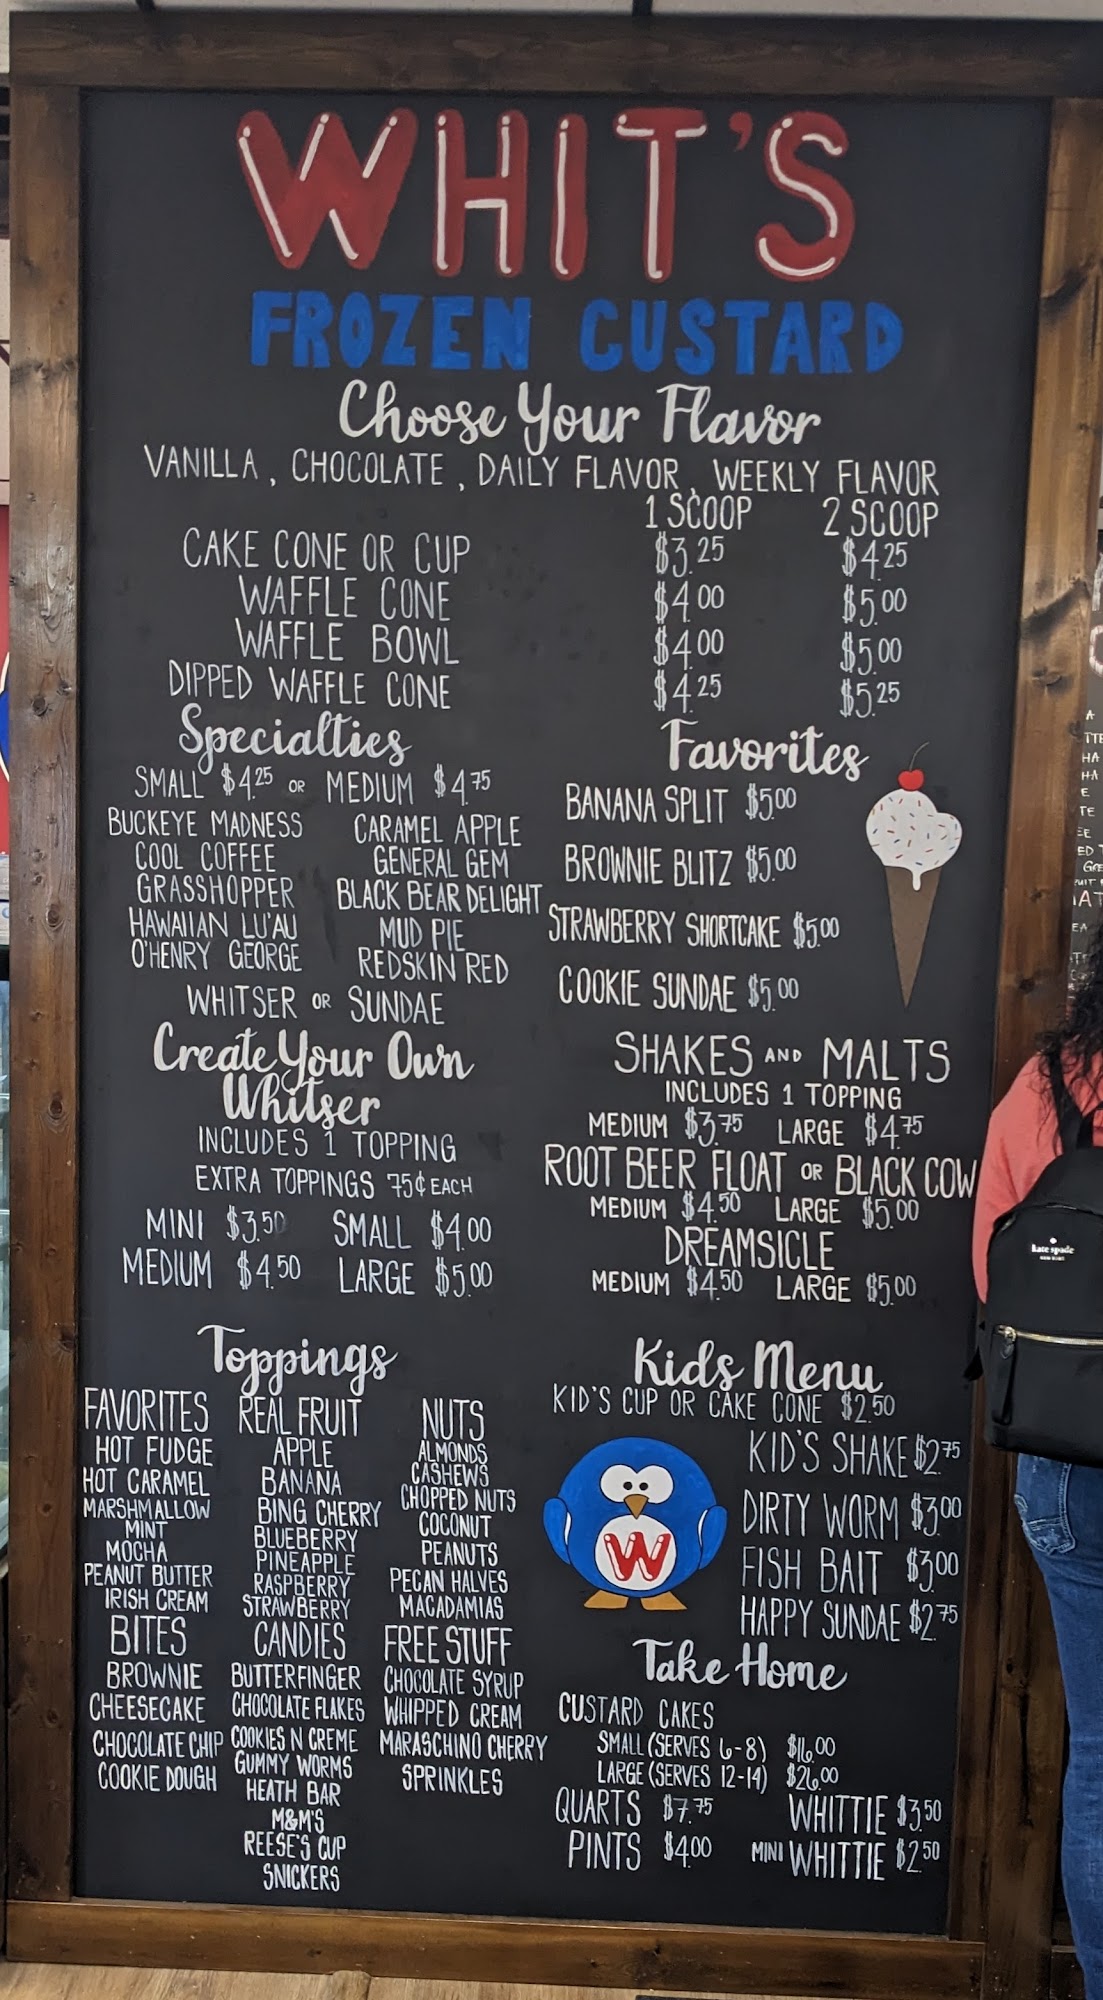 WHIT'S
FROZEN CUSTARD
Choose Your Flavor
VANILLA, CHOCOLATE, DAILY FLAVOR, WEEKLY FLAVOR
1 SCOOP 2 SCOOP
CAKE CONE OR CUP $3.25 $4.25
WAFFLE CONE $4.00 $5.00
WAFFLE BOWL $4.00 $5.00
DIPPED WAFFLE CONE $4.25 $5.25
Specialties
SMALL $4.25 OR MEDIUM $4.75
BUCKEYE MADNESS CARAMEL APPLE
COOL COFFEE GENERAL GEM
GRASSHOPPER BLACK BEAR DELIGHT
HAWAIIAN LU'AU MUD PIE
O'HENRY GEORGE REDSKIN RED
WHITSER OR SUNDAE
Create Your Own
Whitser
INCLUDES 1 TOPPING
EXTRA TOPPINGS 75¢ EACH
MINI $3.50 SMALL $4.00
MEDIUM $4.50 LARGE $5.00
Favorites
BANANA SPLIT $5.00
BROWNIE BLITZ $5.00
STRAWBERRY SHORTCAKE $5.00
COOKIE SUNDAE $5.00
SHAKES AND MALTS
INCLUDES 1 TOPPING
MEDIUM $3.75 LARGE $4.75
ROOT BEER FLOAT OR BLACK COW
MEDIUM $4.50 LARGE $5.00
DREAMSICLE
MEDIUM $4.50 LARGE $5.00
Toppings
FAVORITES
HOT FUDGE
HOT CARAMEL
MARSHMALLOW
MINT
MOCHA
PEANUT BUTTER
IRISH CREAM
BITES
BROWNIE
CHEESECAKE
CHOCOLATE CHIP
COOKIE DOUGH
REAL FRUIT
APPLE
BANANA
BING CHERRY
BLUEBERRY
PINEAPPLE
RASPBERRY
STRAWBERRY
CANDIES
BUTTERFINGER
CHOCOLATE FLAKES
COOKIES N CREME
GUMMY WORMS
HEATH BAR
M&M'S
REESE'S CUP
SNICKERS
NUTS
ALMONDS
CASHEWS
CHOPPED NUTS
COCONUT
PEANUTS
PECAN HALVES
MACADAMIAS
FREE STUFF
CHOCOLATE SYRUP
WHIPPED CREAM
MARASCHINO CHERRY
SPRINKLES
Kids Menu
KID'S CUP OR CAKE CONE $2.50
KID'S SHAKE $2.75
DIRTY WORM $3.00
FISH BAIT $3.00
HAPPY SUNDAE $2.75
W
Take Home
CUSTARD CAKES
SMALL (SERVES 6-8) $16.00
LARGE (SERVES 12-14) $26.00
QUARTS $7.75 WHITTIE $3.50
PINTS $4.00 MINI WHITTIE $2.50
kate spade
NEW YORK